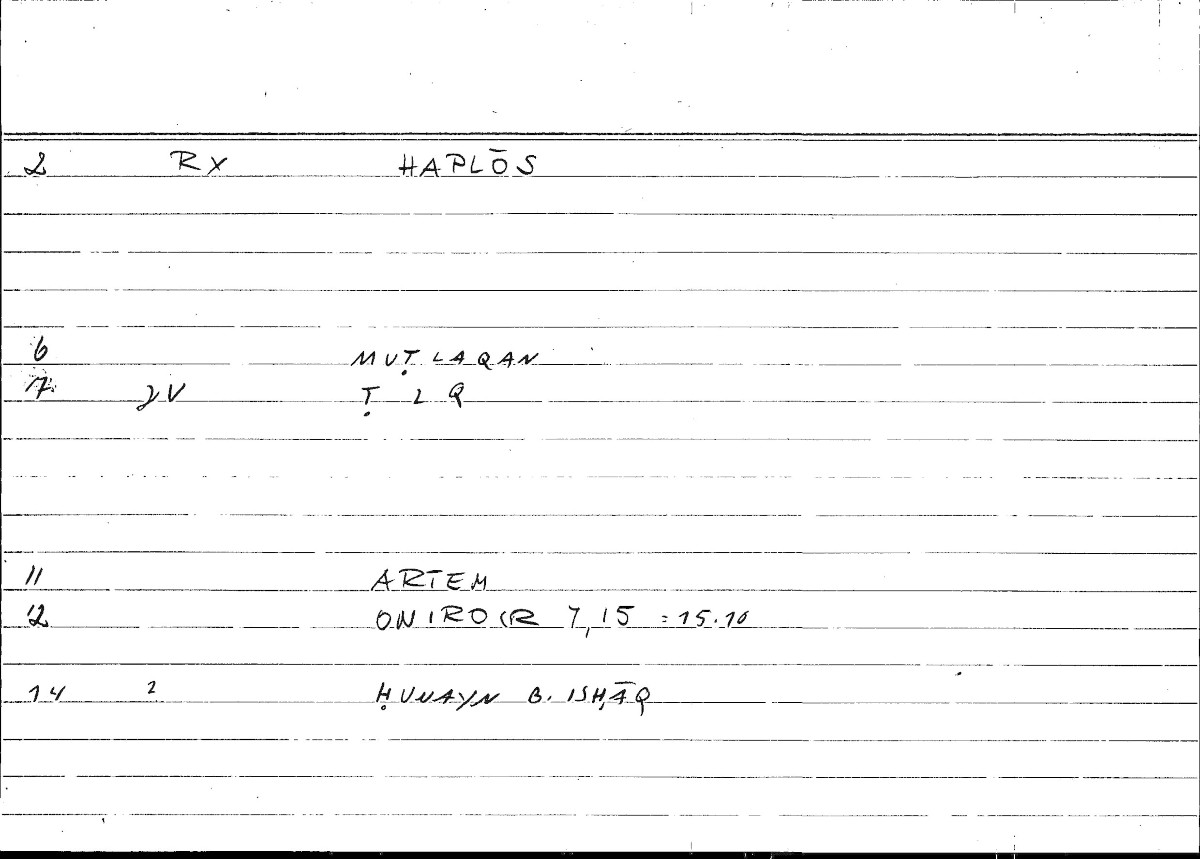 2 RX HAPLŌS
6 MUṬLAQAN
7 2V Ṭ L Q
11 ARTEM
12 ONIROCR 7,15 = 15.10
14 2 ḤUNAYN B. ISḤĀQ